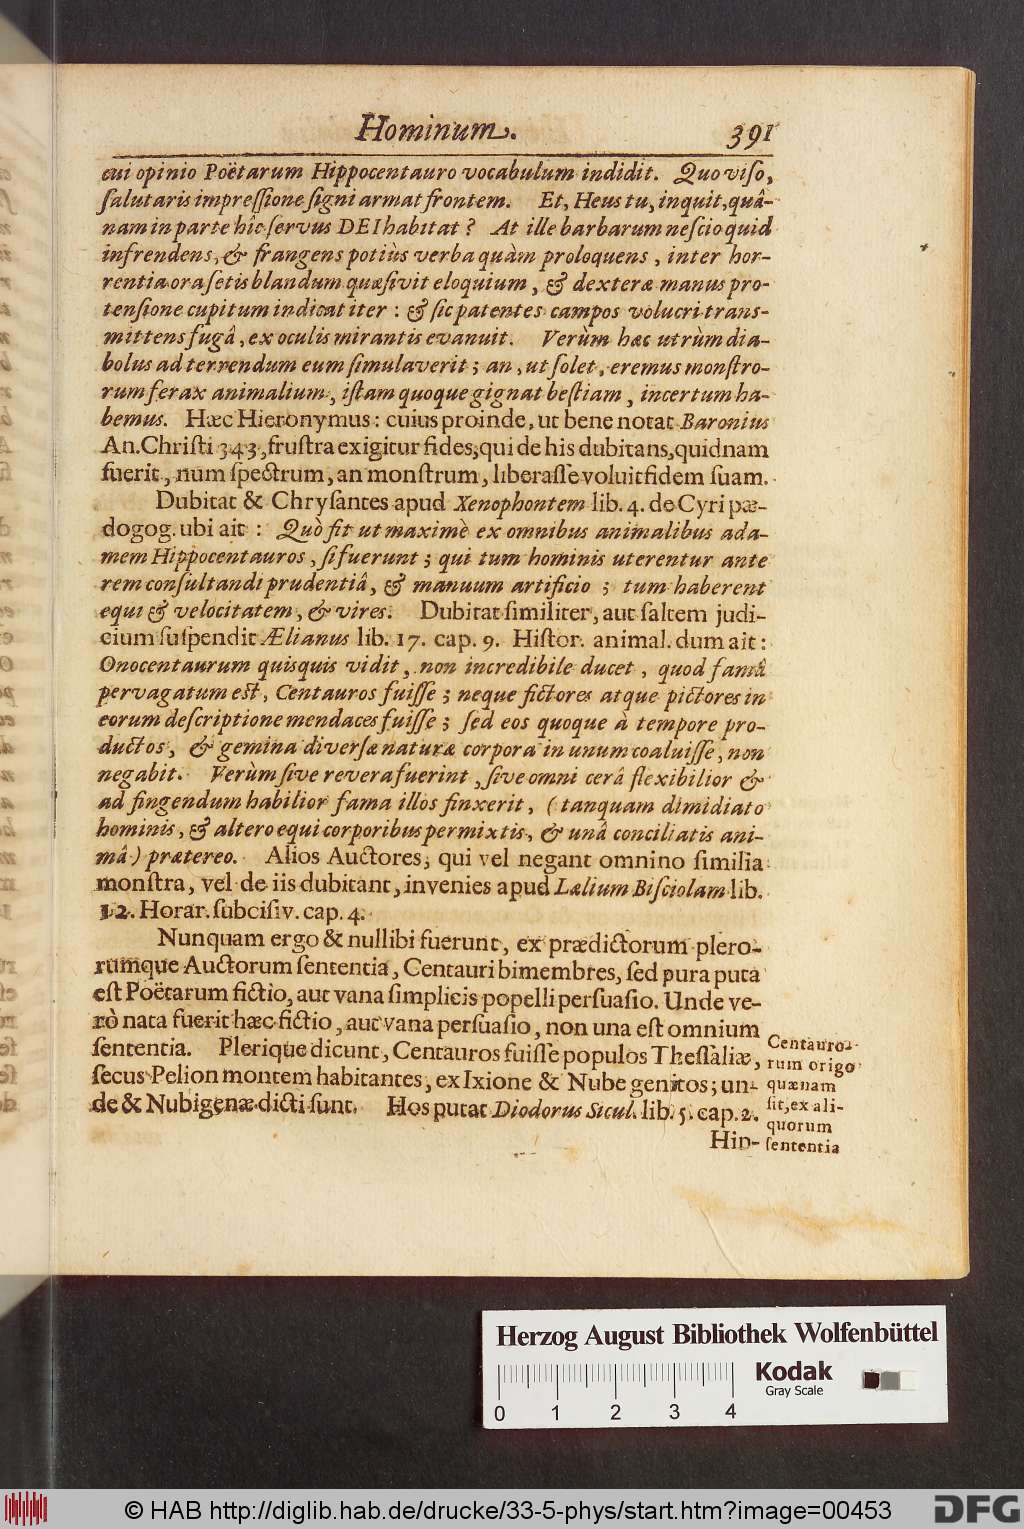 Hominum.
391
cui opinio Poëtarum Hippocentauro vocabulum indidit. Quo viso,
ſalutaris impreſſione ſigni armat frontem. Et, Heus tu, inquit, quâ-
nam in parte hîc ſervus DEI habitat? At ille barbarum neſcio quid
infrendens, & frangens potiùs verba quàm proloquens, inter hor-
rentia ora ſetis blandum quæſivit eloquium, & dexteræ manus pro-
tenſione cupitum indicat iter: & ſic patentes campos volucri trans-
mittens fugâ, ex oculis mirantis evanuit. Verùm hæc utrùm dia-
bolus ad terrendum eum ſimulaverit; an, ut ſolet, eremus monſtro-
rum ferax animalium, iſtam quoque gignat beſtiam, incertum ha-
bemus. Hæc Hieronymus: cuius proinde, ut bene notat Baronius
An. Chriſti 343, fruſtra exigitur fides, qui de his dubitans, quidnam
fuerit, num ſpectrum, an monſtrum, liberaſſe voluit fidem ſuam.
Dubitat & Chryſantes apud Xenophontem lib. 4. de Cyri pæ-
dogog. ubi ait: Quò fit ut maximè ex omnibus animalibus ada-
mem Hippocentauros, ſi fuerunt; qui tum hominis uterentur ante
rem conſultandi prudentiâ, & manuum artificio; tum haberent
equi & velocitatem, & vires. Dubitat ſimiliter, aut ſaltem judi-
cium ſuſpendit Ælianus lib. 17. cap. 9. Hiſtor. animal. dum ait:
Onocentaurum quisquis vidit, non incredibile ducet, quod famâ
pervagatum eſt, Centauros fuiſſe; neque fictores atque pictores in
eorum deſcriptione mendaces fuiſſe; ſed eos quoque à tempore pro-
ductos, & gemina diverſæ naturæ corpora in unum coaluiſſe, non
negabit. Verùm ſive revera fuerint, ſive omni cerâ flexibilior &
ad fingendum habilior fama illos finxerit, (tanquam dimidiato
hominis, & altero equi corporibus permixtis, & unâ conciliatis ani-
mâ) prætereo. Alios Auctores, qui vel negant omnino ſimilia
monſtra, vel de iis dubitant, invenies apud Lælium Biſciolam lib.
12. Horar. ſubciſiv. cap. 4.
Nunquam ergo & nullibi fuerunt, ex prædictorum plero-
rumque Auctorum ſententia, Centauri bimembres, ſed pura puta
eſt Poëtarum fictio, aut vana ſimplicis popelli perſuaſio. Unde ve-
rò nata fuerit hæc fictio, aut vana perſuaſio, non una eſt omnium
ſententia. Plerique dicunt, Centauros fuiſſe populos Theſſaliæ,
ſecus Pelion montem habitantes, ex Ixione & Nube genitos; un-
de & Nubigenæ dicti ſunt. Hos putat Diodorus Sicul. lib. 5. cap. 2.
Hip-
Centauro-
rum origo
quænam
ſit, ex ali-
quorum
ſententia
Herzog August Bibliothek Wolfenbüttel
Kodak
Gray Scale
0 1 2 3 4
© HAB http://diglib.hab.de/drucke/33-5-phys/start.htm?image=00453
DFG